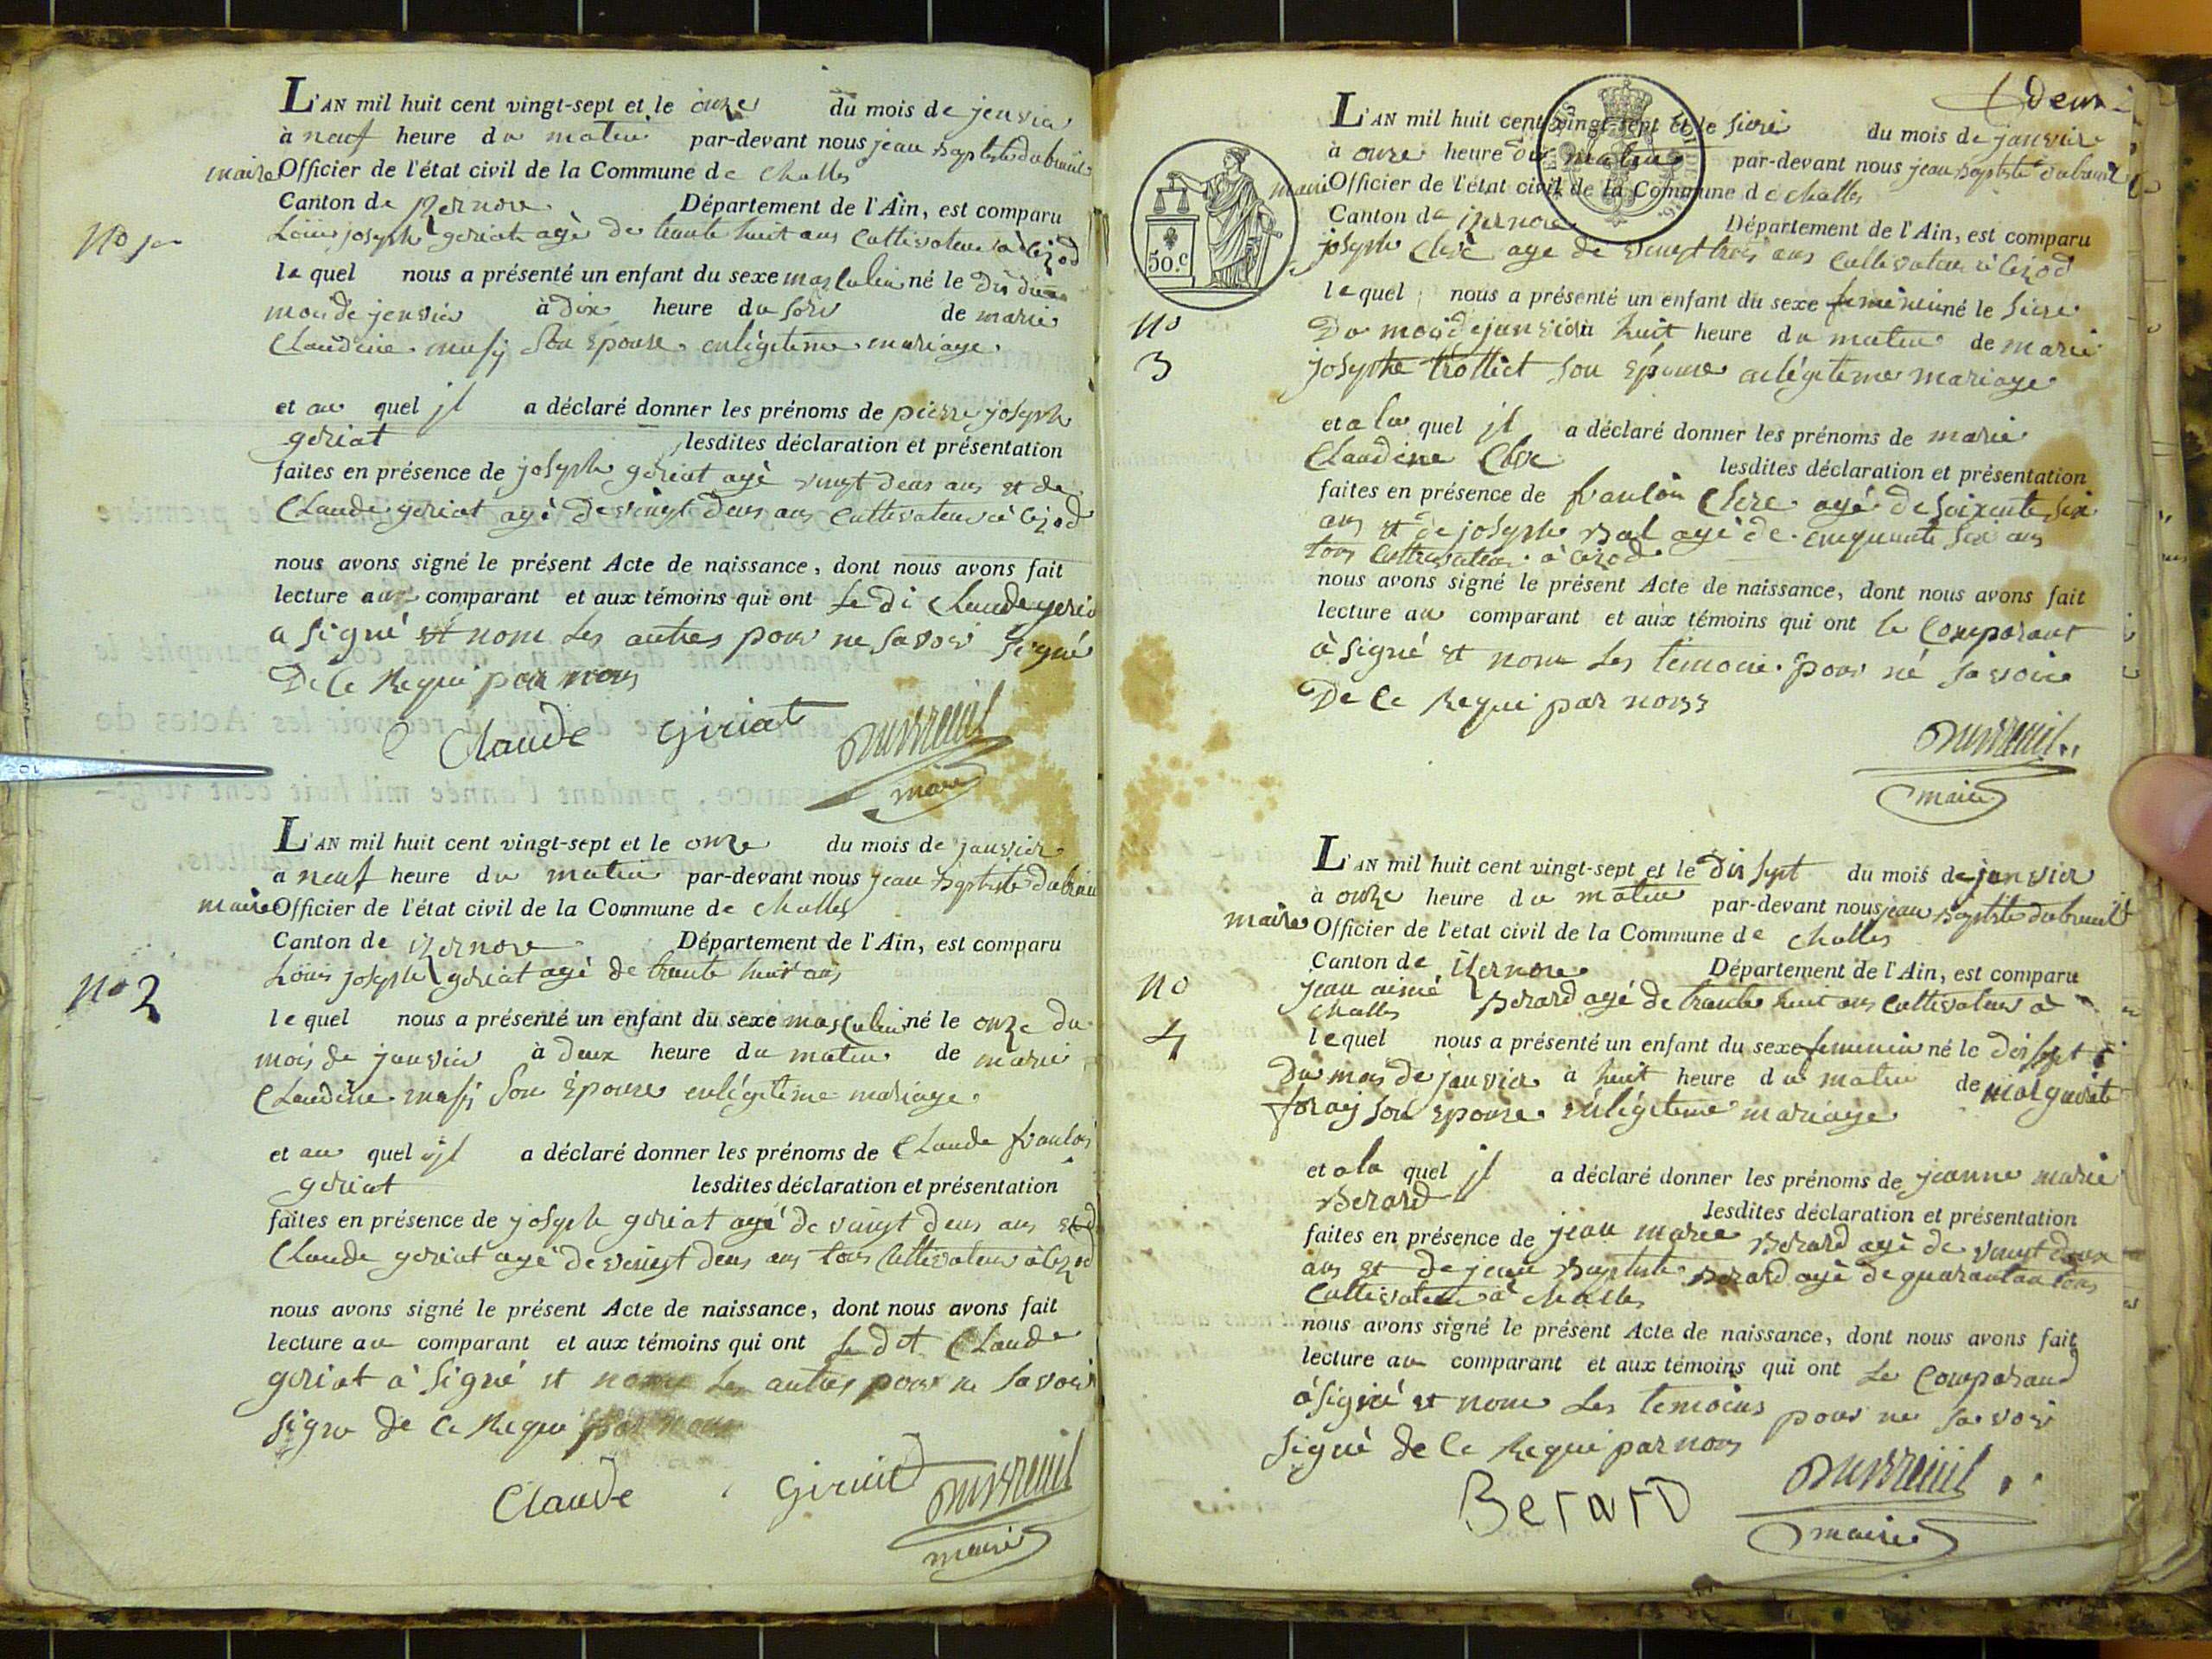 L'AN mil huit cent vingt-sept et le onze du mois de jenvier
à neuf heure du matin par-devant nous jean baptiste dubreuil
maire Officier de l'état civil de la Commune de Challes
Canton de izernore Département de l'Ain, est comparu
Louis joseph goriat agé de trante huit ans Cultivateur à Cezod
No 1er
le quel nous a présenté un enfant du sexe masculin né le dis du
moi de jenvier à dix heure du soir de marie
Claudine musy son épouse en légitime mariage
et au quel jl a déclaré donner les prénoms de pierre joseph
goriat lesdites déclaration et présentation
faites en présence de joseph goriat agé vingt deus ans et de
Claude goriat agé de vingt deus ans Cultivateur à Cezod
nous avons signé le présent Acte de naissance, dont nous avons fait
lecture au comparant et aux témoins qui ont Le di Claude goria
a signé et nom les autres pour ne savoir signé
De Ce Requi par nous
Claude Giriat Dubreuil
maire
L'AN mil huit cent vingt-sept et le onze du mois de janvier
a neuf heure du matin par-devant nous jean baptiste dubreuil
maire Officier de l'état civil de la Commune de Challes
Canton de izernore Département de l'Ain, est comparu
Louis joseph goriat agé de trante huit ans
No 2
le quel nous a présenté un enfant du sexe masculin né le onze du
mois de janvier à deux heure du matin de marie
Claudine musy son épouse en légitime mariage
et au quel jl a déclaré donner les prénoms de Claude francois
goriat lesdites déclaration et présentation
faites en présence de joseph goriat agé de vingt deus ans et d
Claude goriat agé de vingt deus ans tous Cultivateur à Cezod
nous avons signé le présent Acte de naissance, dont nous avons fait
lecture au comparant et aux témoins qui ont Le dit Claude
goriat à signé et nom les autres pour ne savoir
signe de Ce Requi par nous
Claude Giriat Dubreuil
maire
deux
L'AN mil huit cent vingt-sept et le sieze du mois de janvier
à onze heure du matin par-devant nous jean baptiste dubreuil
maire Officier de l'état civil de la Commune de Challes
Canton de izernore Département de l'Ain, est comparu
joseph Clerc age de vingt trois ans Cultivateur à Cezod
50.c
le quel nous a présenté un enfant du sexe feminein né le sieze
No
3
Du mois de janvier à huit heure du matin de marie
josephe trolliet son épouse en légitime mariage
et a la quel jl a déclaré donner les prénoms de marie
Claudine Clerc lesdites déclaration et présentation
faites en présence de francois Clerc agé de soixente six
ans et de joseph bal agé de cinquante six ans
tous Cultivateur à Cezod
nous avons signé le présent Acte de naissance, dont nous avons fait
lecture au comparant et aux témoins qui ont le Comparant
à signé et nom les temoin pour né savoire
De Ce Requi par nous
Dubreuil
maire
L'AN mil huit cent vingt-sept et le dis sept du mois de janvier
à onze heure du matin par-devant nous jean baptiste dubreuil
maire Officier de l'état civil de la Commune de Challes
Canton de izernore Département de l'Ain, est comparu
jean aimé Berard agé de trante huit ans Cultivateur à
Challes
No
4
le quel nous a présenté un enfant du sexe feminein né le dis sept
Du mois de janvier à huit heure du matin de margueritte
foray son épouse en légitime mariage
et a la quel jl a déclaré donner les prénoms de jeanne marie
Berard lesdites déclaration et présentation
faites en présence de jean marie Berard agé de vingt deux
ans et de jean Baptiste Berard agé de quarantan tous
Cultivateur à Challes
nous avons signé le présent Acte de naissance, dont nous avons fait
lecture au comparant et aux témoins qui ont Le Comparand
à signé et nom les temoins pour ne savoir
signé de Ce Requi par nous
Berard Dubreuil
maire